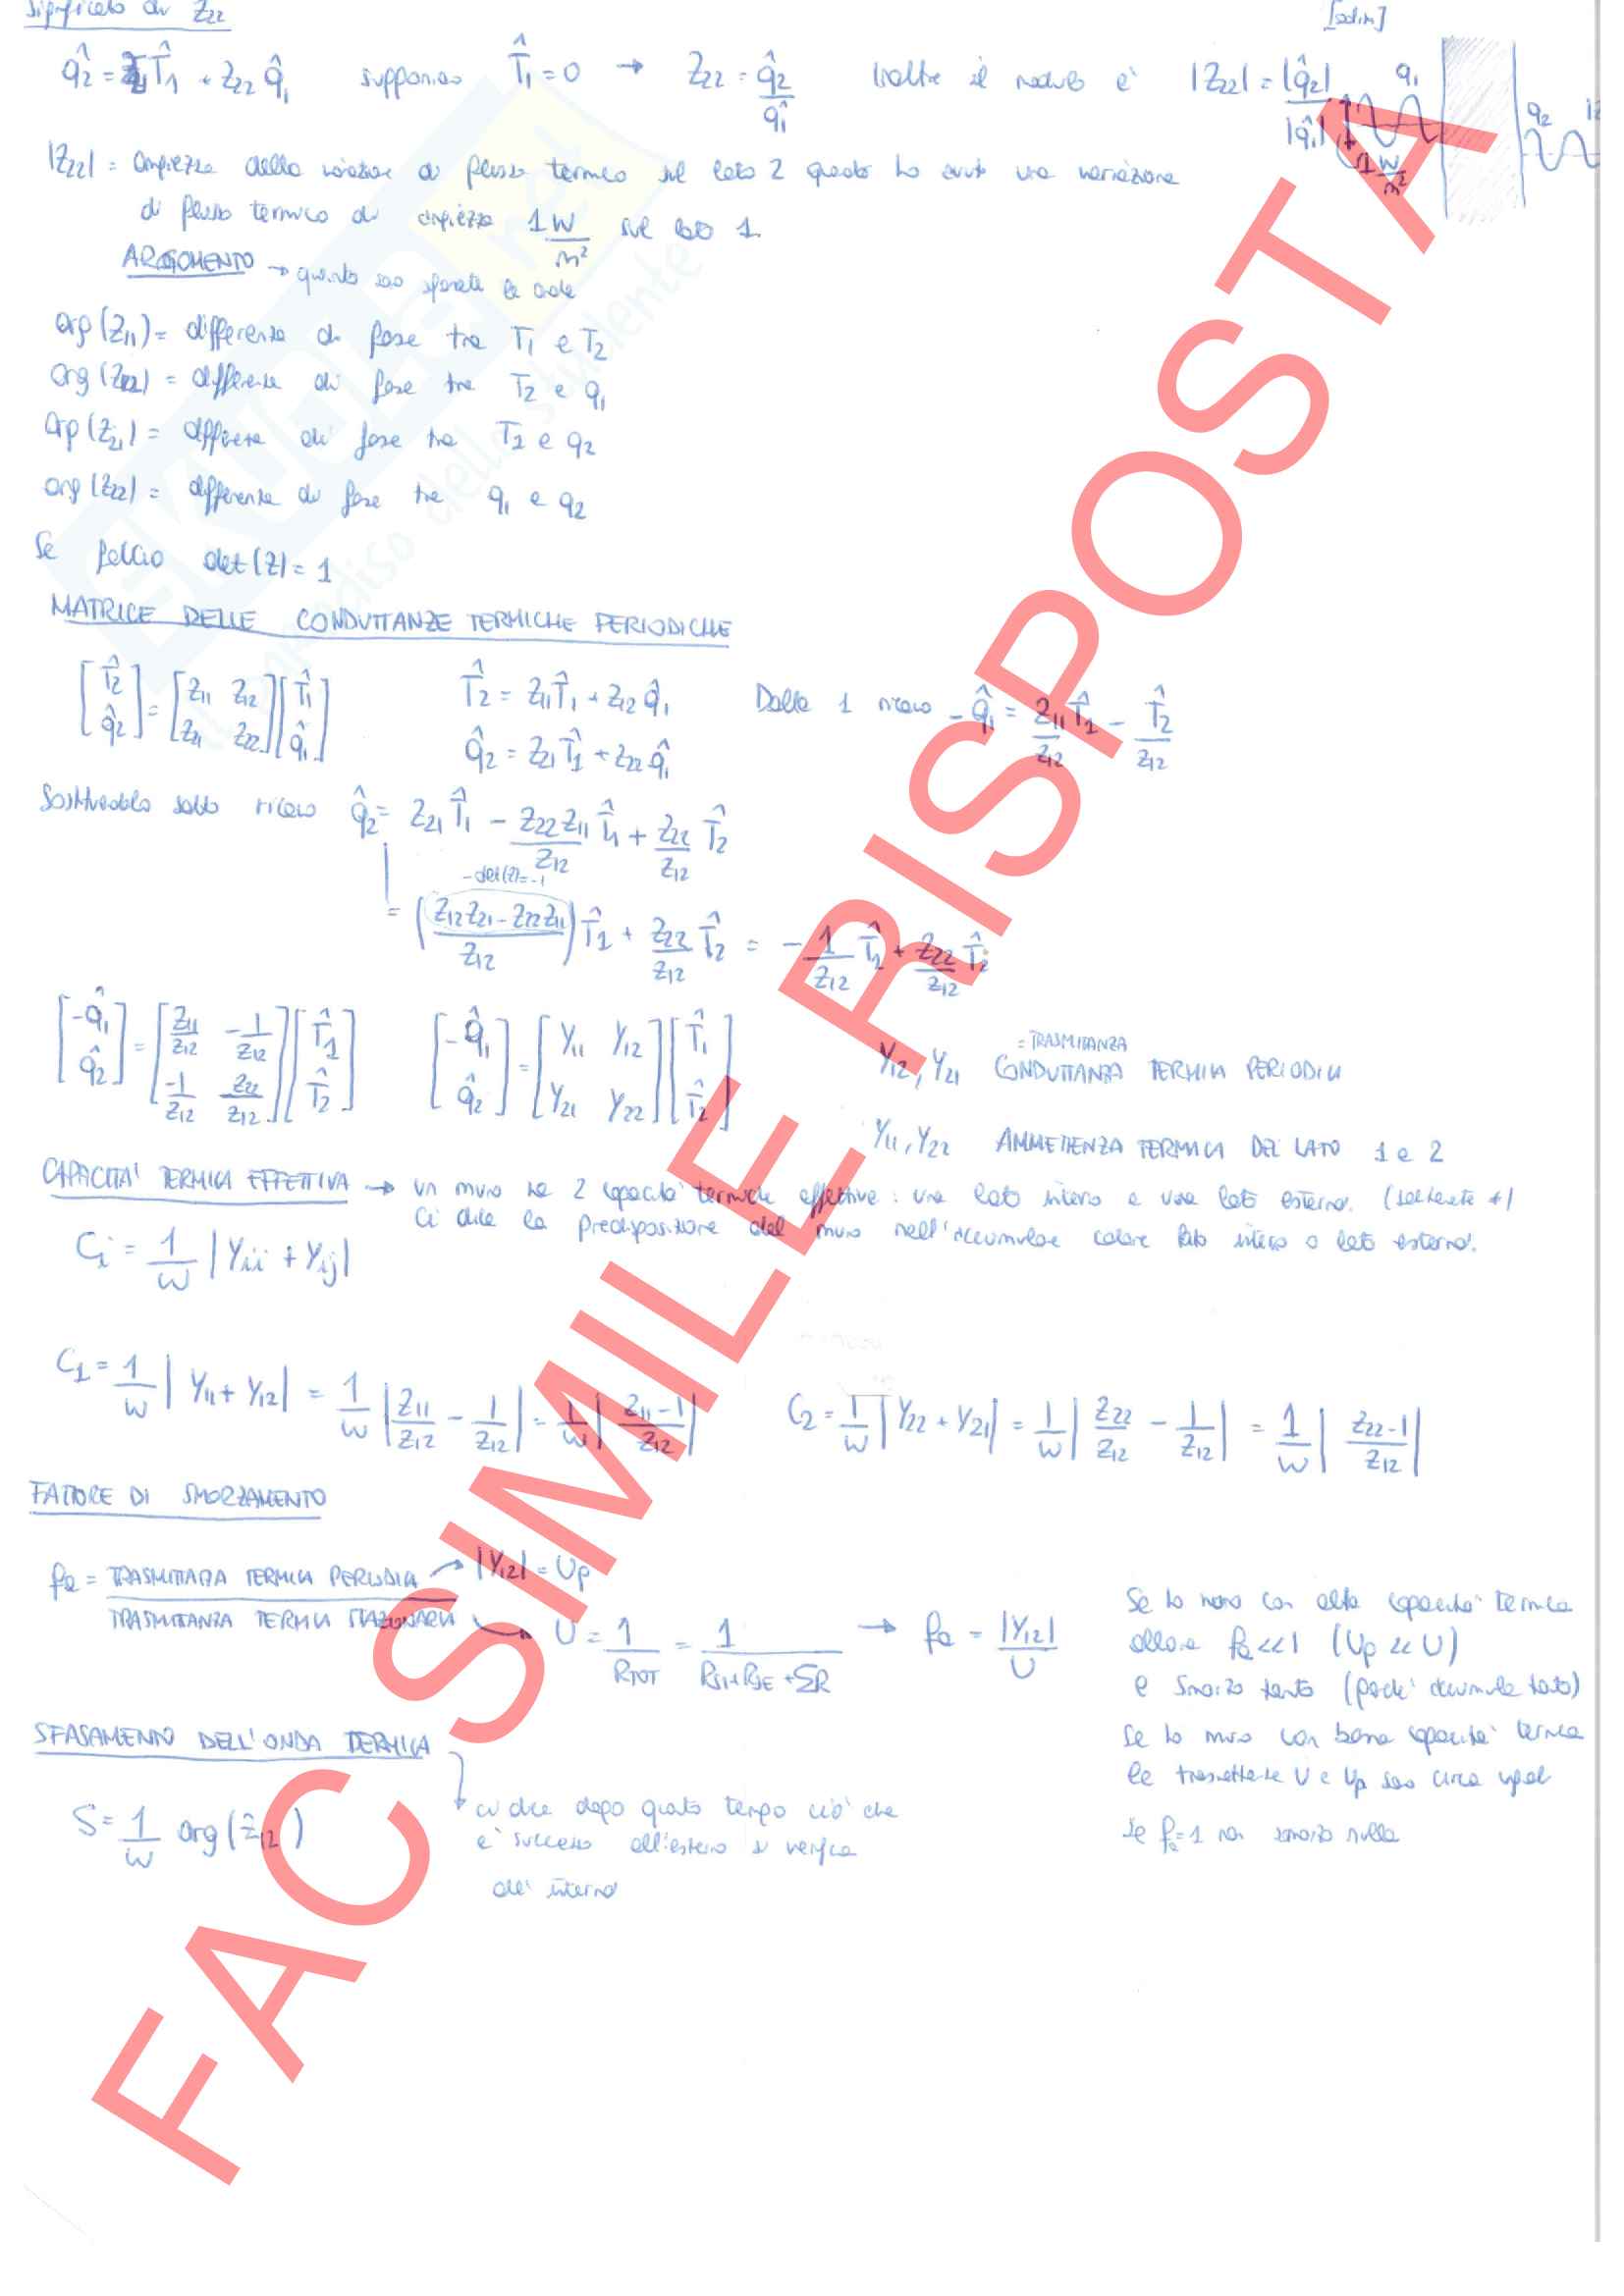 Significato di Z22
q̂2 = Z21 T̂1 + Z22 q̂1 suppongo T̂1 = 0 → Z22 = q̂2/q̂1 inoltre il modulo è |Z22| = |q̂2|/|q̂1| [adim]
q1
q2
1 W/m²
|Z22| = ampiezza della variazione di flusso termico sul lato 2 quando ho avuto una variazione
di flusso termico di ampiezza 1 W/m² sul lato 1
ARGOMENTO → quanto sono sfasate le onde
arg(Z11) = differenza di fase tra T1 e T2
arg(Z12) = differenza di fase tra T2 e q1
arg(Z21) = differenza di fase tra T1 e q2
arg(Z22) = differenza di fase tra q1 e q2
Se faccio det(Z) = 1
MATRICE DELLE CONDUTTANZE TERMICHE PERIODICHE
[T̂2 q̂2] = [Z11 Z12 Z21 Z22] [T̂1 q̂1]
T̂2 = Z11 T̂1 + Z12 q̂1
q̂2 = Z21 T̂1 + Z22 q̂1
Dalla 1 ricavo -q̂1 = Z11/Z12 T̂1 - T̂2/Z12
Sostituendola sotto ricavo q̂2 = Z21 T̂1 - Z22 Z11/Z12 T̂1 + Z22/Z12 T̂2
-det(Z) = -1
= (Z12 Z21 - Z22 Z11 / Z12) T̂1 + Z22/Z12 T̂2 = - 1/Z12 T̂1 + Z22/Z12 T̂2
[-q̂1 q̂2] = [Z11/Z12 -1/Z12 -1/Z12 Z22/Z12] [T̂1 T̂2]
[-q̂1 q̂2] = [Y11 Y12 Y21 Y22] [T̂1 T̂2]
= TRASMITTANZA
Y12, Y21 CONDUTTANZA TERMICA PERIODICA
Y11, Y22 AMMETTENZA TERMICA DEL LATO 1 e 2
CAPACITA' TERMICA EFFETTIVA → un muro ha 2 capacità termiche effettive: una lato interno e una lato esterno. (solitamente ≠)
Ci dice la predisposizione del muro nell'accumulare calore lato interno o lato esterno.
Ci = 1/w |Yii + Yij|
C1 = 1/w |Y11 + Y12| = 1/w |Z11/Z12 - 1/Z12| = 1/w |Z11-1/Z12|
C2 = 1/w |Y22 + Y21| = 1/w |Z22/Z12 - 1/Z12| = 1/w |Z22-1/Z12|
FATTORE DI SMORZAMENTO
fa = TRASMITTANZA TERMICA PERIODICA / TRASMITTANZA TERMICA STAZIONARIA
|Y12| = Up
U = 1/RTOT = 1/RSI+RSE+ΣR → fa = |Y12|/U
Se ho muro con alta capacità termica
allora fa<<1 (Up << U)
e smorzo tanto (perchè accumula tanto)
Se ho muro con bassa capacità termica
le trasmittanze U e Up sono circa uguali
se fa=1 non smorzo nulla
SFASAMENTO DELL'ONDA TERMICA
S = 1/w arg(Ẑ12)
ci dice dopo quanto tempo ciò che
è successo all'esterno si verifica
all'interno
FAC SIMILE RISPOSTA
SKUOLA.net
il paradiso dello studente